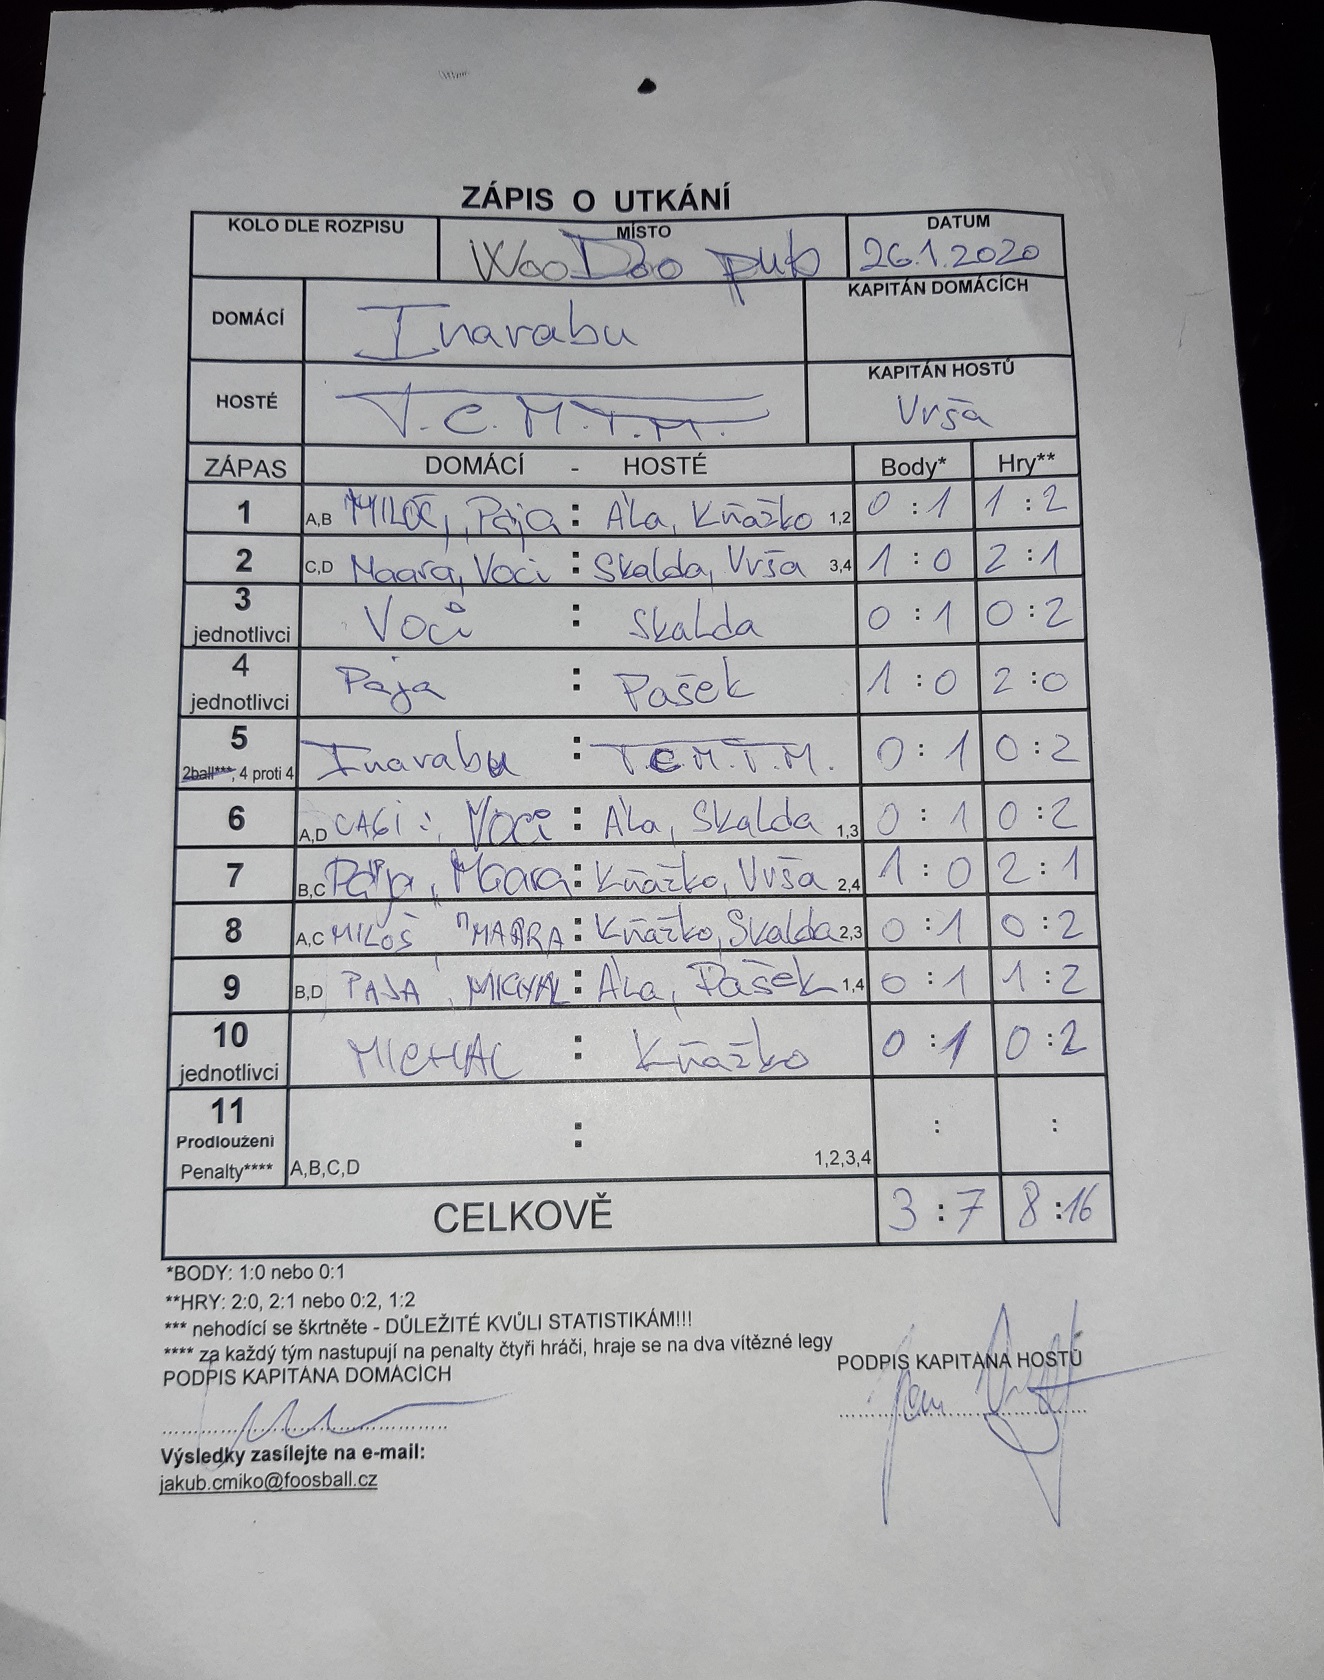 ZÁPIS O UTKÁNÍ
KOLO DLE ROZPISU
MÍSTO
WooDoo pub
DATUM
26.1.2020
DOMÁCÍ
Inarabu
KAPITÁN DOMÁCÍCH
HOSTÉ
T.C.M.T.M.
KAPITÁN HOSTŮ
Vrša
ZÁPAS DOMÁCÍ - HOSTÉ Body* Hry**
1 A,B MILOŠ, Pája : Ála, Kňažko 1,2 0 : 1 1 : 2
2 C,D Maara, Voci : Skalda, Vrša 3,4 1 : 0 2 : 1
3 jednotlivci Voci : Skalda 0 : 1 0 : 2
4 jednotlivci Pája : Pašek 1 : 0 2 : 0
5 2ball***, 4 proti 4 Inarabu : T.C.M.T.M. 0 : 1 0 : 2
6 A,D CAGI, Voci : Ála, Skalda 1,3 0 : 1 0 : 2
7 B,C Pája, Maara : Kňažko, Vrša 2,4 1 : 0 2 : 1
8 A,C MILOŠ, MAARA : Kňažko, Skalda 2,3 0 : 1 0 : 2
9 B,D PAJA, MICHAL : Ála, Pašek 1,4 0 : 1 1 : 2
10 jednotlivci MICHAL : Kňažko 0 : 1 0 : 2
11 Prodloužení Penalty**** A,B,C,D : 1,2,3,4 : :
CELKOVĚ 3 : 7 8 : 16
*BODY: 1:0 nebo 0:1
**HRY: 2:0, 2:1 nebo 0:2, 1:2
*** nehodící se škrtněte - DŮLEŽITÉ KVŮLI STATISTIKÁM!!!
**** za každý tým nastupují na penalty čtyři hráči, hraje se na dva vítězné legy
PODPIS KAPITÁNA DOMÁCÍCH
PODPIS KAPITÁNA HOSTŮ
Výsledky zasílejte na e-mail:
jakub.cmiko@foosball.cz